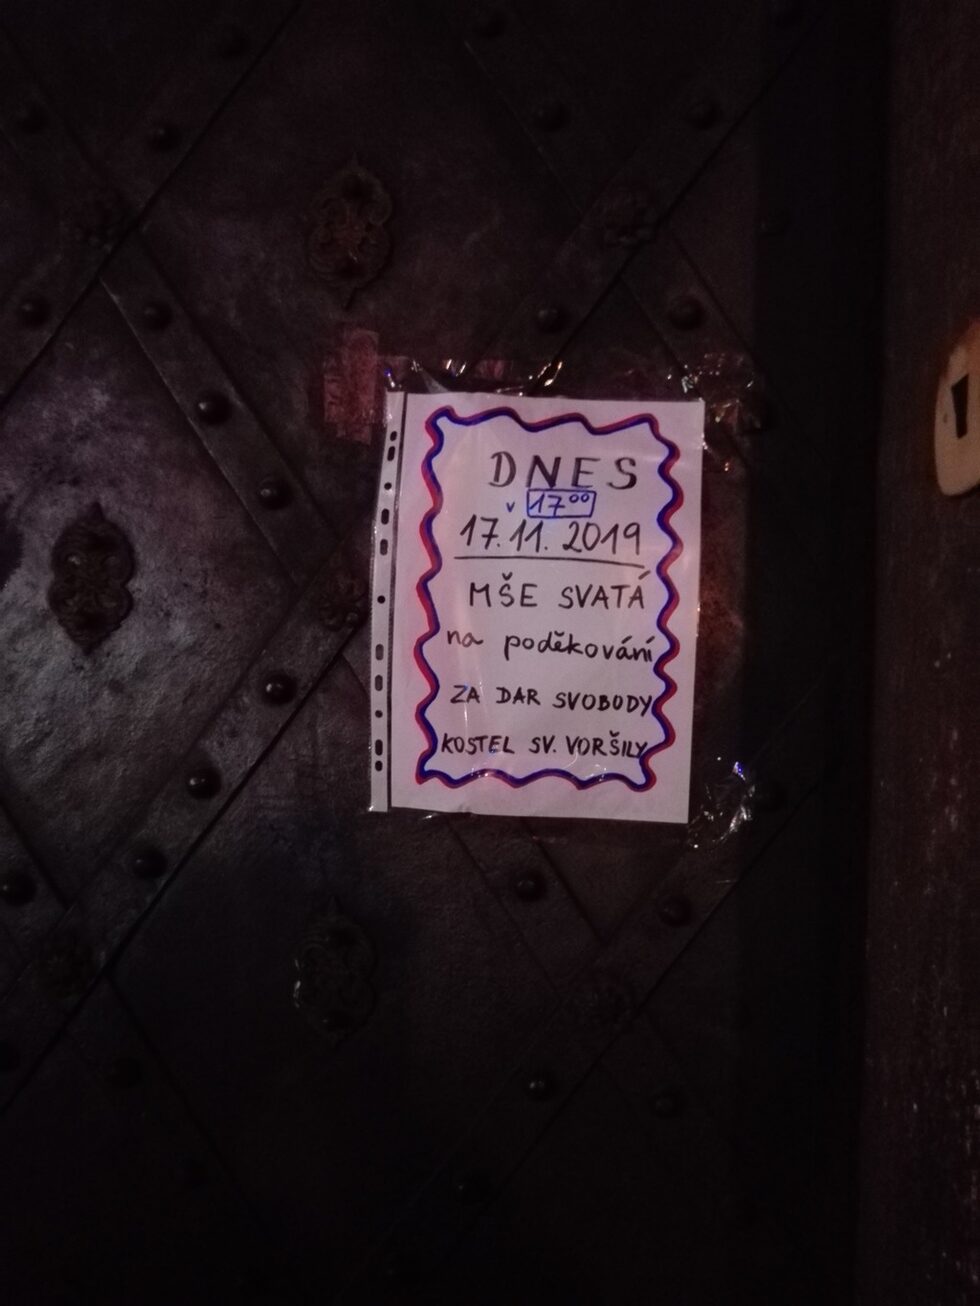 DNES
v 17⁰⁰
17.11. 2019
MŠE SVATÁ
na poděkování
ZA DAR SVOBODY
KOSTEL SV. VORŠILY